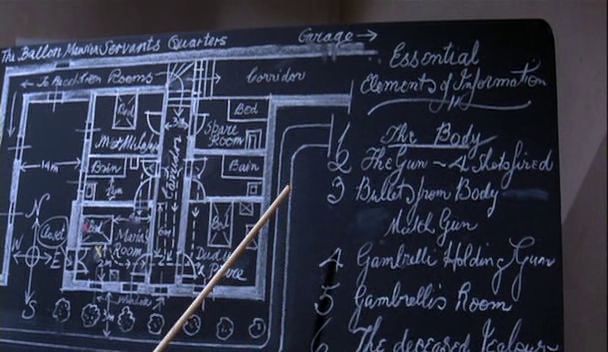 The Ballon Mansia Servants Quarters
Garage →
To Reception Rooms
Corridor
Bed
Bed
Spare
Room
14m
Corridor
Bain
Bain
N
W E
S
Closet
Bed
Maria
Room
Bed
Dudley
Pierre
Window
Essential
Elements of Information
1 The Body
2 The Gun - 4 Shots fired
3 Bullets from Body
Match Gun
4 Gambrelli Holding Gun
5 Gambrelli's Room
6 The deceased Jealous